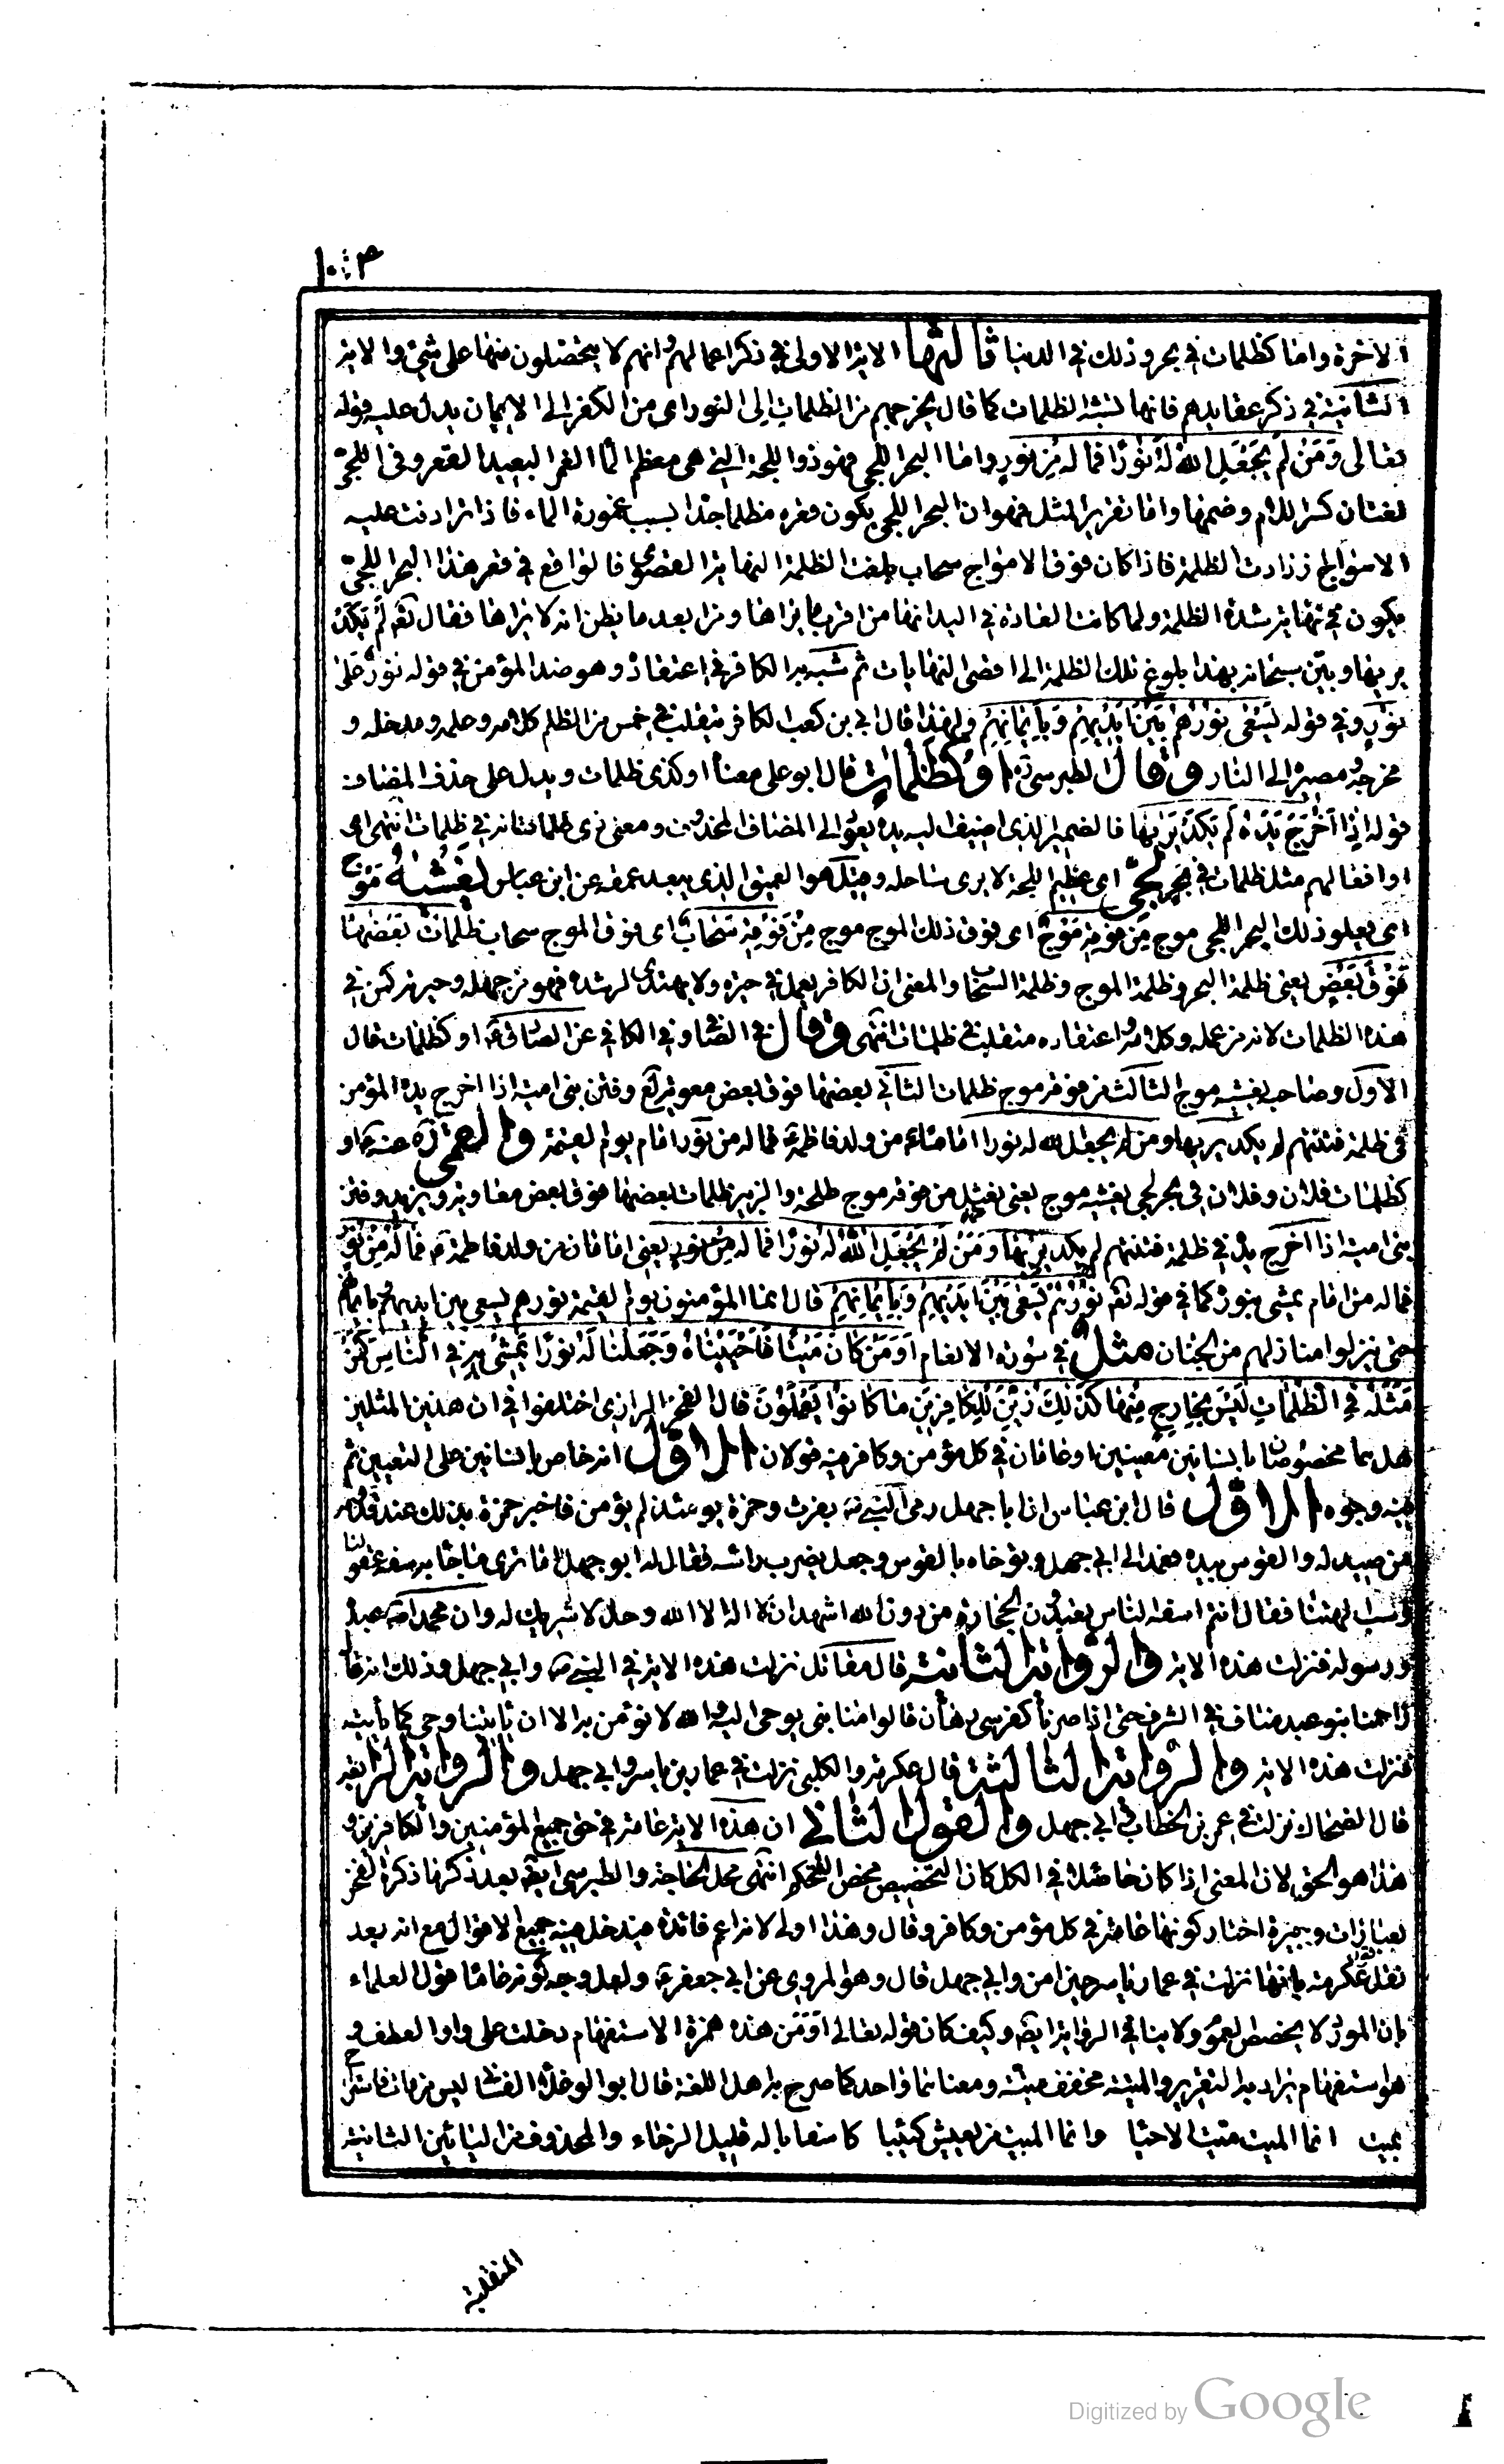 الاخرة واما كظلمات في بحر وذلك في الدنيا ثالثها الاية الاولى في ذكر اعمالهم وانهم لا يتحصلون منها على شيء والاية
الثانية في ذكر عقايدهم فانها تشبه الظلمات كما قال يخرجهم من الظلمات الى النور اى من الكفر الى الايمان يدل عليه قوله
تعالى وَمَنْ لَمْ يَجْعَلِ اللهُ لَهُ نُورًا فَمَا لَهُ مِنْ نُورٍ واما البحر اللجى فهو ذو اللجة التى هى معظم الماء الغمر البعيد القعر وفى اللجى
لغتان كسر اللام وضمها واما تقرير المثل فهو ان البحر اللجى يكون قعره مظلما جدا بسبب غمورة الماء فاذا ترادفت عليه
الامواج زادت الظلمة فاذا كان فوق الامواج سحاب بلغت الظلمة النهاية القصوى فالواقع فى قعر هذا البحر اللجى
يكون فى نهاية شدة الظلمة ولما كانت العادة فى اليد انها من اقرب ما يراها ومن ابعد ما يظن انه لا يراها فقال تعـ لَمْ يَكَدْ
يريها وبين سبحانه بهذا بلوغ تلك الظلمة الى اقصى النهايات ثم شبه به الكافر فى اعتقاده وهو ضد المؤمن فى قوله نور على
نور وفى قوله يَسْعَى نُورُهُمْ بَيْنَ أَيْدِيهِمْ وَبِأَيْمَانِهِمْ ولهذا قال ابى بن كعب الكافر يتقلب فى خمس من الظلم كلامه وعلمه ومدخله و
مخرجه ومصيره الى النار وقال الطبرسى ره اَوْ كَظُلُمَاتٍ قال ابو على معناه او كذى ظلمات ويدل على حذف المضاف
قوله اِذَا اَخْرَجَ يَدَهُ لَمْ يَكَدْ يَرَيهَا فالضمير الذى اضيف اليه يده يعود الى المضاف المحذوف ومعنى ذى ظلمات انه فى ظلمات انتهى اى
او افعالهم مثل ظلمات فى بَحْرٍ لُجِّىٍّ اى عظيم اللجة لا يرى ساحله وقيل هو العميق الذى يبعد عمقه عن ابن عباس يَغْشَيهُ مَوْجٌ
اى يعلو ذلك البحر اللجى موج مِنْ فَوْقِهِ مَوْجٌ اى فوق ذلك الموج موج مِنْ فَوْقِهِ سَحَابٌ اى فوق الموج سحاب ظُلُمَاتٌ بَعْضُهَا
فَوْقَ بَعْضٍ يعنى ظلمة البحر وظلمة الموج وظلمة السحاب والمعنى ان الكافر يعمل فى حيرة ولا يهتدى لرشده فهو من جهله وحيرته كمن فى
هذه الظلمات لانه من عمله وكلامه واعتقاده متقلب فى ظلمات انتهى وقال فى الصافى وفى الكافى عن الصادق ع او كظلمات قال
الاول وصاحبه يغشيه موج الثالث من فوقه موج ظلمات الثانى بعضها فوق بعض معوية لع وفتن بنى امية اذا اخرج يده المؤمن
فى ظلمة فتنتهم لم يكد يريها ومن لم يجعل الله له نورا اماما من ولد فاطمة ع فما له من نور امام يوم القيمة والقمى ره عنه ع او
كظلمات فلان وفلان فى بحر لجى يغشيه موج يعنى نعثل من فوقه موج طلحة والزبير ظلمات بعضها فوق بعض معاوية ويزيد وفتن
بنى امية اذا اخرج يده فى ظلمة فتنتهم لم يكد يريها وَمَنْ لَمْ يَجْعَلِ اللهُ لَهُ نُورًا فما له من نور يعنى اماما من ولد فاطمة ع فَمَا لَهُ مِنْ نُورٍ
فما له من امام يمشى بنوره كما فى قوله تعـ نُورُهُمْ يَسْعَى بَيْنَ أَيْدِيهِمْ وَبِأَيْمَانِهِمْ قال انما المؤمنون يوم القيمة نورهم يسعى بين ايديهم وبايمانهم
حتى ينزلوا منازلهم من الجنان مثل فى سورة الانعام اَوَمَنْ كَانَ مَيْتًا فَاَحْيَيْنَاهُ وَجَعَلْنَا لَهُ نُورًا يَمْشِى بِهِ فِى النَّاسِ كَمَنْ
مَثَلُهُ فِى الظُّلُمَاتِ لَيْسَ بِخَارِجٍ مِنْهَا كَذٰلِكَ زُيِّنَ لِلْكَافِرِينَ مَا كَانُوا يَعْمَلُونَ قال الفخر الرازى اختلفوا فى ان هذين المثلين
هل هما مخصوصان بانسانين معينين او عامان فى كل مؤمن وكافر فيه قولان الاول انه خاص بانسانين على التعيين ثم
فيه وجوه الاول قال ابن عباس ان ابا جهل رمى النبى ص بفرث وحمزة يومئذ لم يؤمن فاخبر حمزة بذلك عند قدومه
من صيد له والقوس بيده فعمد الى ابى جهل وتوخاه بالقوس وجعل يضرب راسه فقال له ابو جهل اما ترى ما جاء به سفه عقولنا
وسب الهتنا فقال انتم اسفه الناس تعبدون الحجارة من دون الله اشهد ان لا اله الا الله وحده لا شريك له وان محمدا ص عبده
ورسوله فنزلت هذه الاية والرواية الثانية قال مقاتل نزلت هذه الاية فى النبى ص وابى جهل وذلك انه قال
زاحمنا بنو عبد مناف فى الشرف حتى اذا صرنا كفرسى رهان قالوا منا نبى يوحى اليه والله لا نؤمن به الا ان ياتينا وحى كما ياتيه
فنزلت هذه الاية والرواية الثالثة قال عكرمة والكلبى نزلت فى عمار بن ياسر وابى جهل والرواية الرابعة
قال الضحاك نزلت فى عمر بن الخطاب وابى جهل والقول الثانى ان هذه الاية عامة فى حق جميع المؤمنين والكافرين و
هذا هو الحق لان المعنى اذا كان حاصلا فى الكل كان التخصيص محض التحكم انتهى محل الحاجة والطبرسى ايضا بعد ذكر ما ذكره الفخر
بعبارات وجيزة اختار كونها عامة فى كل مؤمن وكافر وقال وهذا اولى لانه اعم فائدة فيدخل فيه جميع الاقوال مع انه بعد
نقل قول عكرمة بانها نزلت فى عمار ياسر حين امن وابى جهل قال وهو المروى عن ابى جعفر ع ولعل وجه كونه عاما قول العلماء
بان المورد لا يخصص العموم ولا ينافى الرواية ايضا وكيف كان قوله تعالى اَوَمَنْ هذه همزة الاستفهام دخلت على واو العطف و
هو استفهام يراد به التقرير والميتة مخفف ميتة ومعناهما واحد كما صرح به اهل اللغة قال ابو الوعلاء الفشا ليس من مات فاستراح
بميت انما الميت ميت الاحيا وانما الميت من يعيش كئيبا كاسفا باله قليل الرخاء والمحذوف من اليائين الثانية
المنقلبة